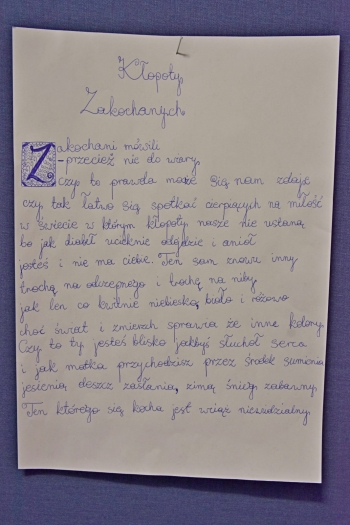 Kłopoty
Zakochanych
Zakochani mówili
- przecież nie do wiary
czy to prawda może się nam zdaje
czy tak łatwo się spotkać cierpiących na miłość
w świecie w którym kłopoty nasze nie ustaną
bo jak diabeł ucieknie odejdzie i anioł
jesteś i nie ma ciebie. Ten sam znowu inny
trochę na odczepnego i trochę na niby
jak len co kwitnie niebiesko, biało i różowo
choć świat i zmierzch sprawia że inne kolory.
Czy to ty jesteś blisko jakbyś słuchał serca
i jak matka przychodzisz przez środek sumienia
jesienią, deszcz zasłania, zimą śnieg zabawny,
Ten którego się kocha jest wciąż niewidzialny.